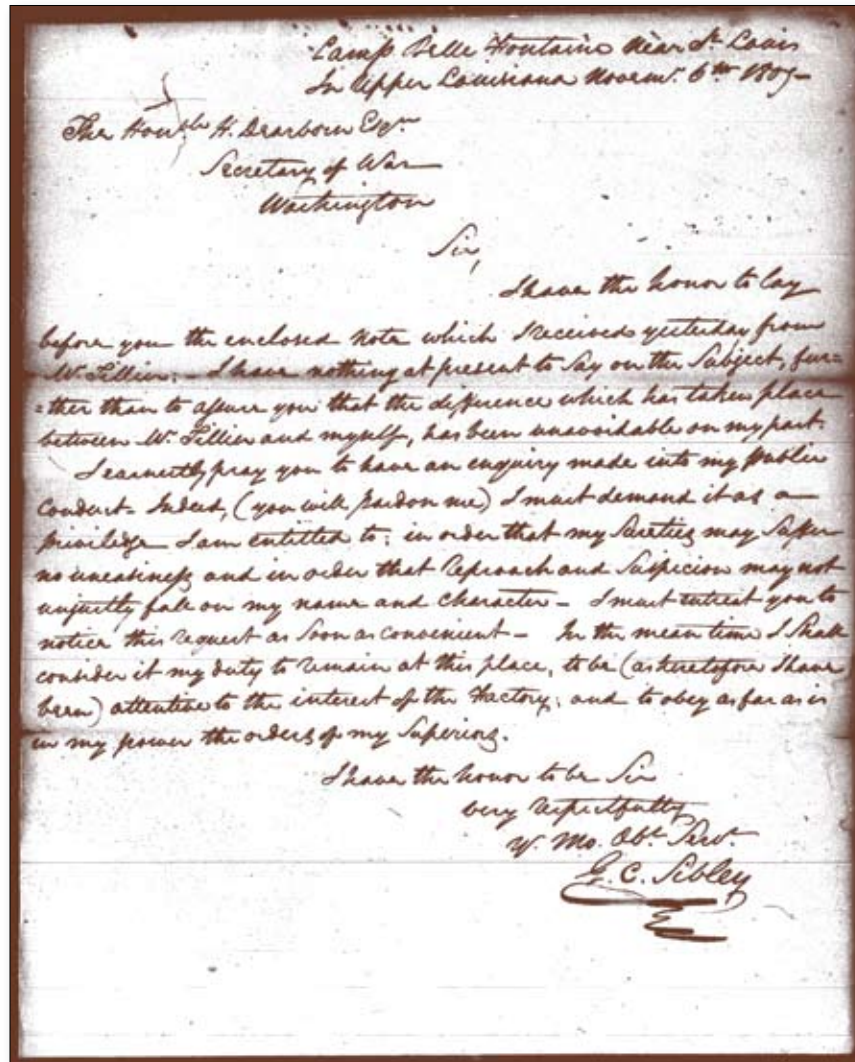 Camp Belle Fontaine Near St. Louis
In Upper Louisiana Novemr. 6th 1805 —
The Honble H. Dearborn Esqr
Secretary of War
Washington
Sir,
I have the honor to lay
before you the enclosed note which I received yesterday from
Mr. Tillier. — I have nothing at present to Say on the Subject, fur=
=ther than to assure you that the difference which has taken place
between Mr. Tillier and myself, has been unavoidable on my part.
I earnestly pray you to have an enquiry made into my public
Conduct — Indeed, (you will pardon me) I must demand it as a
privilege I am entitled to; in order that my Sureties may Suffer
no uneasiness and in order that Reproach and Suspicion may not
unjustly fall on my name and character — I must entreat you to
notice this request as Soon as convenient — In the mean time I Shall
consider it my duty to remain at this place, to be (as heretofore I have
been) attentive to the interest of the Factory; and to obey as far as is
in my power the orders of my Superiors.
I have the honor to be Sir
very respectfully
Yr. Mo. Obt. Servt.
G. C. Sibley